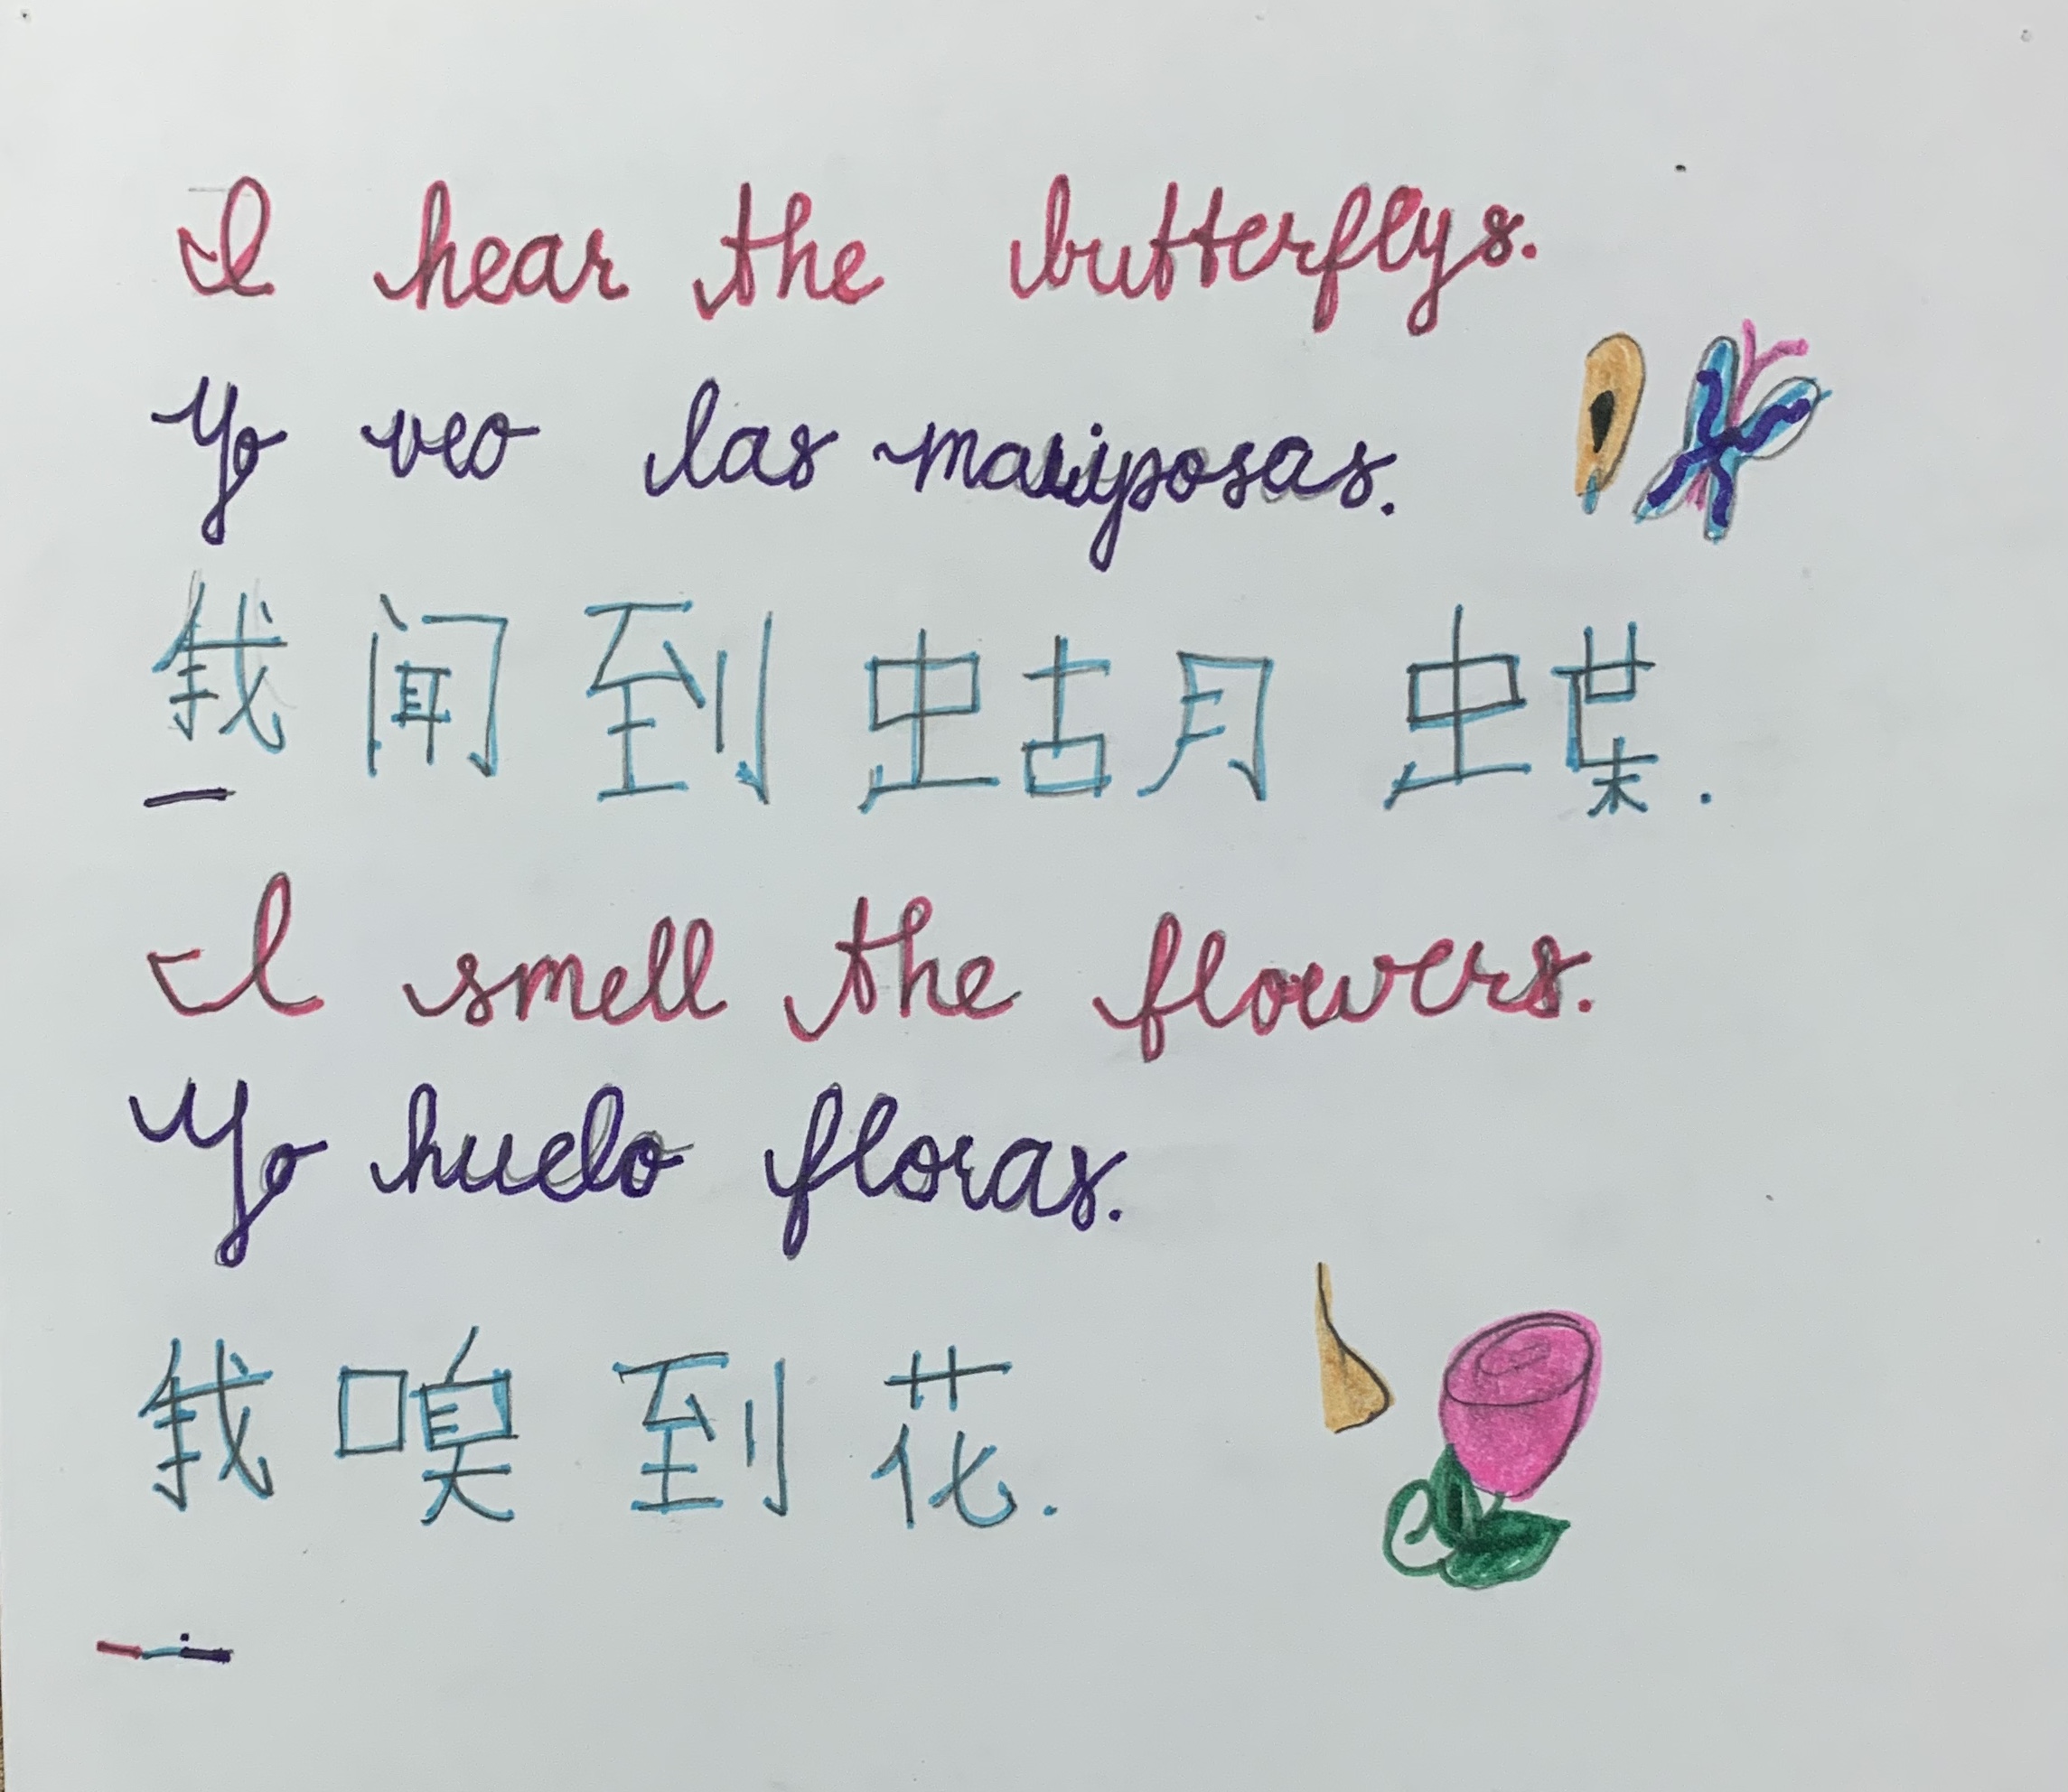 I hear the butterflys.
Yo veo las mariposas.
我闻到蝴蝶.
I smell the flowers.
Yo huelo floras.
我嗅到花.